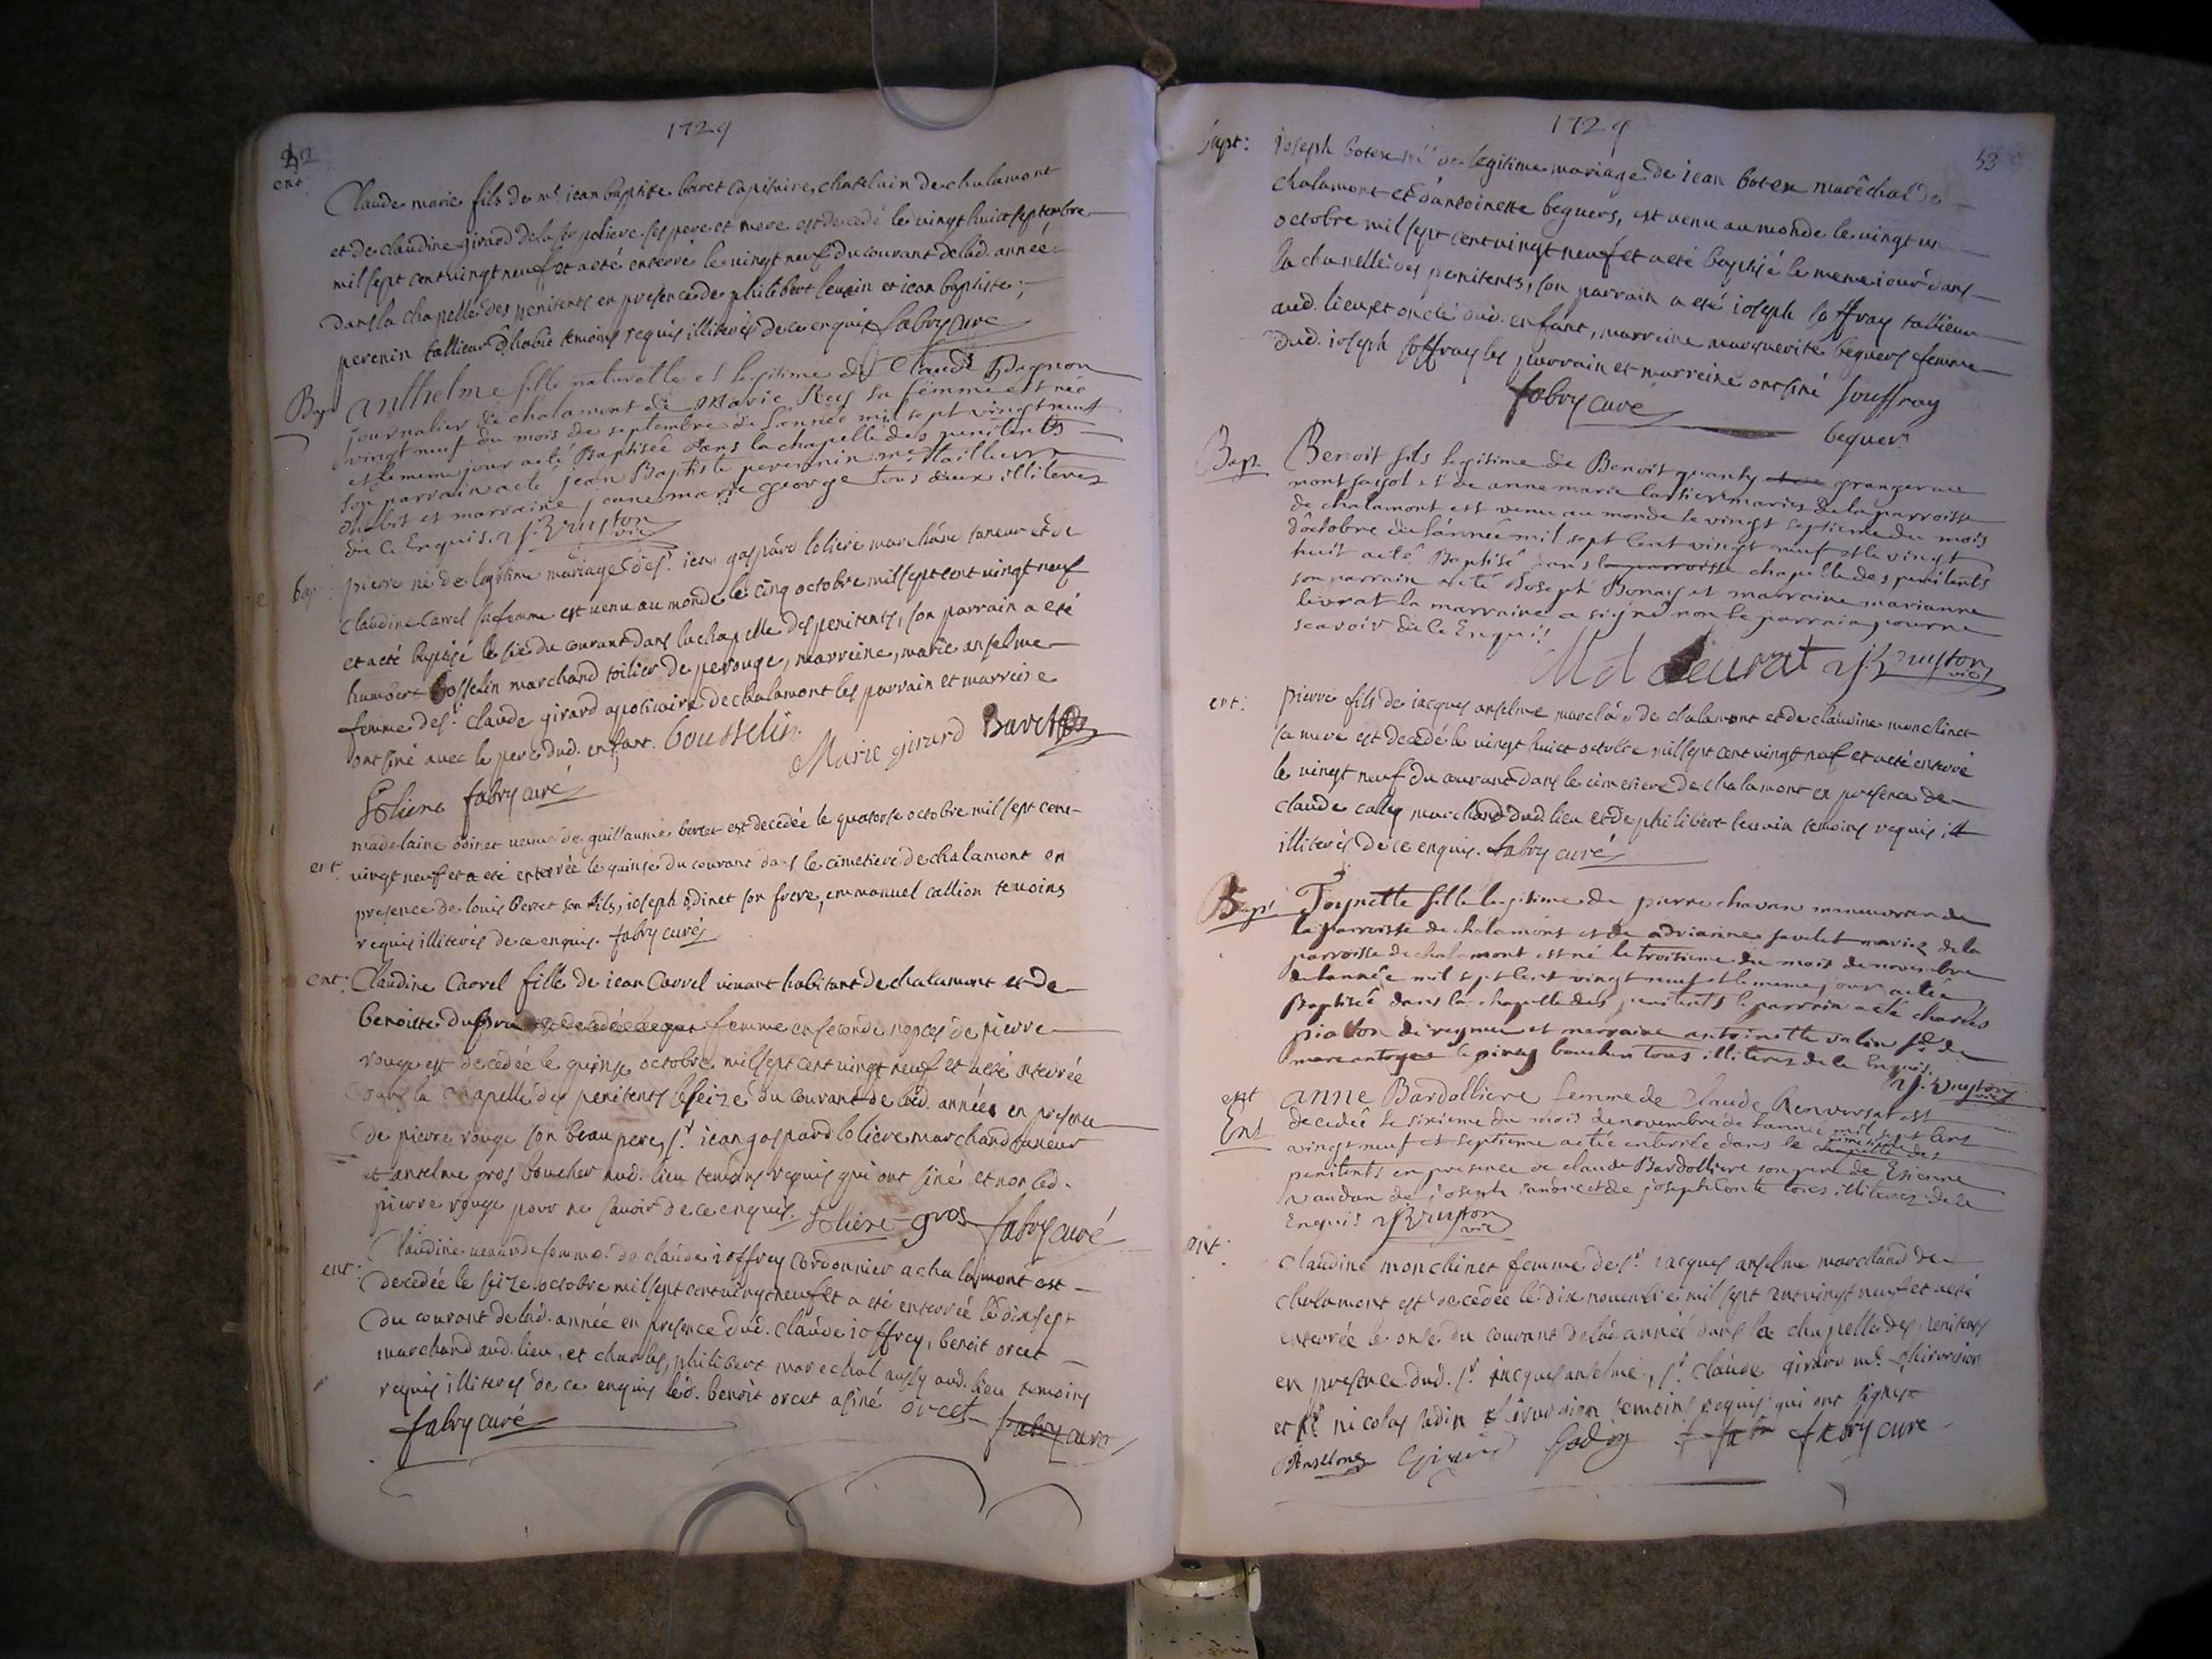 1729
ent.
Claude marie fils de mr. jean baptiste baret capitaine, chatelain de chalamont
et de claudine girard ses pere et mere est decedé le vingt huict septembre
mil sept cent vingt neuf et a eté enterré le vingt neuf du courant de lad. année
dans la chapelle des penitents en presence de philibert leurin et jean baptiste
perenin tallieur d'habit temoins requis illiterés de ce enquis fabry curé
Bap
Anthelme fille naturelle et legitime de Claude Bagnon
journalier de chalamont de Marie Rey sa femme est née
vingt neuf du mois de septembre de l'année mil sept vingt neuf
et le meme jour a eté Baptisée dans la chapelle des penitents
son parrain a eté jean Baptiste perennin mr. tailleur
d'habit et marraine jeane marie george tous deux illiterez
de ce Enquis. J. Bruyton vic
bap:
pierre né de legitime mariage de sr. jean gaspard loliere marchand taneur et de
claudine Carrel sa femme est venu au monde le cinq octobre mil sept cent vingt neuf
et a eté baptisé le six du courant dans la chapelle des penitents, son parrain a eté
humbert bosselin marchand toilier de perouge, marreine, marie anselme
femme de sr. claude girard apoticaire de chalamont les parrain et marreine
ont siné avec le pere dud. enfant. bousselin
Marie girard Baret
Loliere fabry curé
ent
madelaine odinet veuve de guillaume bertet est decedée le quatorse octobre mil sept cent
vingt neuf et a eté enterrée le quinse du courant dans le cimetiere de chalamont en
presence de louis bertet son fils, joseph odinet son frere, emmanuel callion temoins
requis illiterés de ce enquis. fabry curé
ent:
Claudine Carrel fille de jean Carrel vivant habitant de chalamont et de
benoitte femme en seconde nopces de pierre
rouge est decedée le quinse octobre mil sept cent vingt neuf et a eté enterrée
dans la chapelle des penitents le seize du courant de lad. année en presence
de pierre rouge son beau pere, sr. jean gaspard loliere marchand taneur
et anselme gros boucher aud. lieu temoins requis qui ont siné et non led.
pierre rouge pour ne savoir de ce enquis. Loliere gros fabry curé
ent:
Claudine femme de claude joffrey Cordonnier a chalamont est
decedée le seize octobre mil sept cent vingt neuf et a eté enterrée le dix sept
du courant de lad. année en presence dud. claude joffrey, benoit orcet
marchand aud. lieu, et charles, philibert marechal aussy aud. lieu temoins
requis illiterés de ce enquis led. benoit orcet a siné orcet fabry curé
fabry curé
1729
53
bapt:
joseph boten né de legitime mariage de jean boten maréchal de
chalamont et d'antoinette beguers, est venu au monde le vingt un
octobre mil sept cent vingt neuf et a eté baptisé le meme jour dans
la chapelle des penitents, son parrain a eté joseph soffray tallieur
aud. lieu et oncle dud. enfant, marreine marguerite beguers femme
dud. joseph soffray les parrain et marreine ont siné souffray
fabry curé
beguer
Bap.
Benoit fils legitime de Benoit quanty granger au
mont et de anne marie mariez de la parroisse
de chalamont est venu au monde le vingt septieme du mois
d'octobre de l'année mil sept cent vingt neuf et le vingt
huit a eté Baptisé dans la parroisse chapelle des penitents
son parrain a eté Joseph Bonay et marraine marianne
livrat la marraine a signé non le parrain pour ne
scavoir de ce Enquis
M d leurat J. Bruyton vic
ent:
pierre fils de jacques anselme marchand de chalamont et de claudine monchinet
sa mere est decedé le vingt huict octobre mil sept cent vingt neuf et a eté enterré
le vingt neuf du courant dans le cimetiere de chalamont en presence de
claude marchand dud. lieu et de philibert leurin temoins requis
illiterés de ce enquis. fabry curé
Bap.
Toynette fille legitime de pierre chavan manouvrier de
la parroisse de chalamont et de adrianne mariez de la
parroisse de chalamont est né le troisieme du mois de novembre
de l'année mil sept cent vingt neuf et le meme jour a eté
Baptisée dans la chapelle des penitents le parrain a eté charles
piaton de et marraine antoinette valin fe. de
boucher tous illiteres de ce Enquis.
J. Bruyton vic
ent
Ent
anne Bardolliere femme de Claude Renversat est
decedée le sixieme du mois de novembre de l'année mil sept cent
vingt neuf et septieme a eté enterrée dans le cimetiere chapelle des
penitents en presence de claude Bardolliere son pere de Etienne
vandan de joseph et de joseph Conte tous illiterez de ce
Enquis J. Bruyton vic
ent.
claudine monchinet femme de sr. jacques anselme marchand de
chalamont est decedée le dix novembre mil sept cent vingt neuf et a eté
enterrée le onse du courant de lad. année dans la chapelle des penitens
en presence dud. sr. jacques anselme, sr. claude girard mr. chirurgien
et sr. nicolas chirurgien temoins requis qui ont signés
Anselme Girard fabry curé